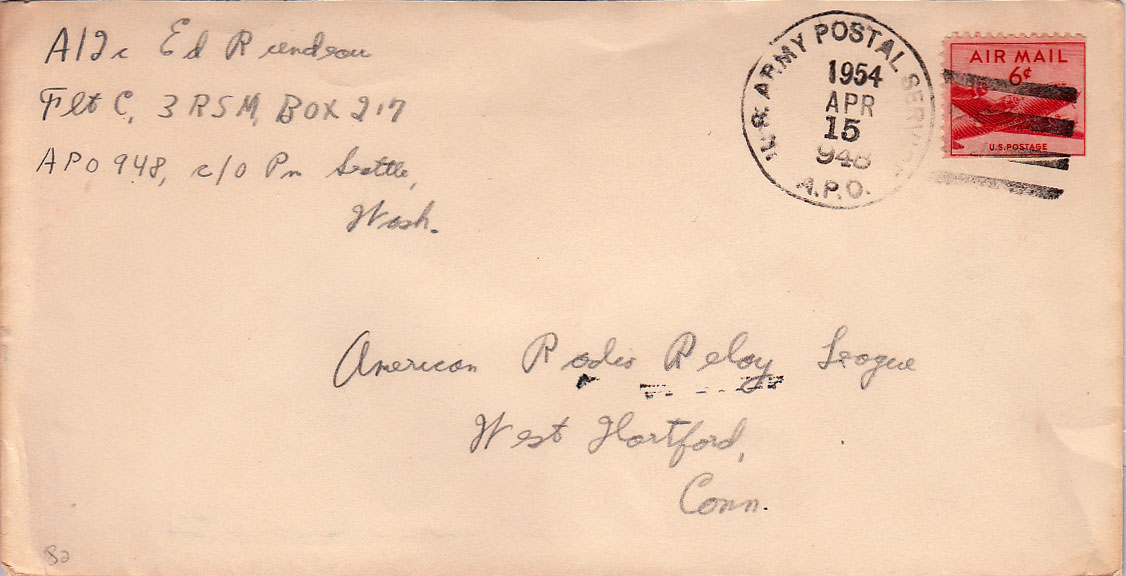 A/2c Ed Riendeau
Flt C, 3 RSM, BOX 217
APO 948, c/o Pm Seattle,
Wash.
U.S. ARMY POSTAL SERVICE
1954
APR
15
948
A.P.O.
AIR MAIL
6¢
U.S. POSTAGE
American Radio Relay League
West Hartford,
Conn.
82